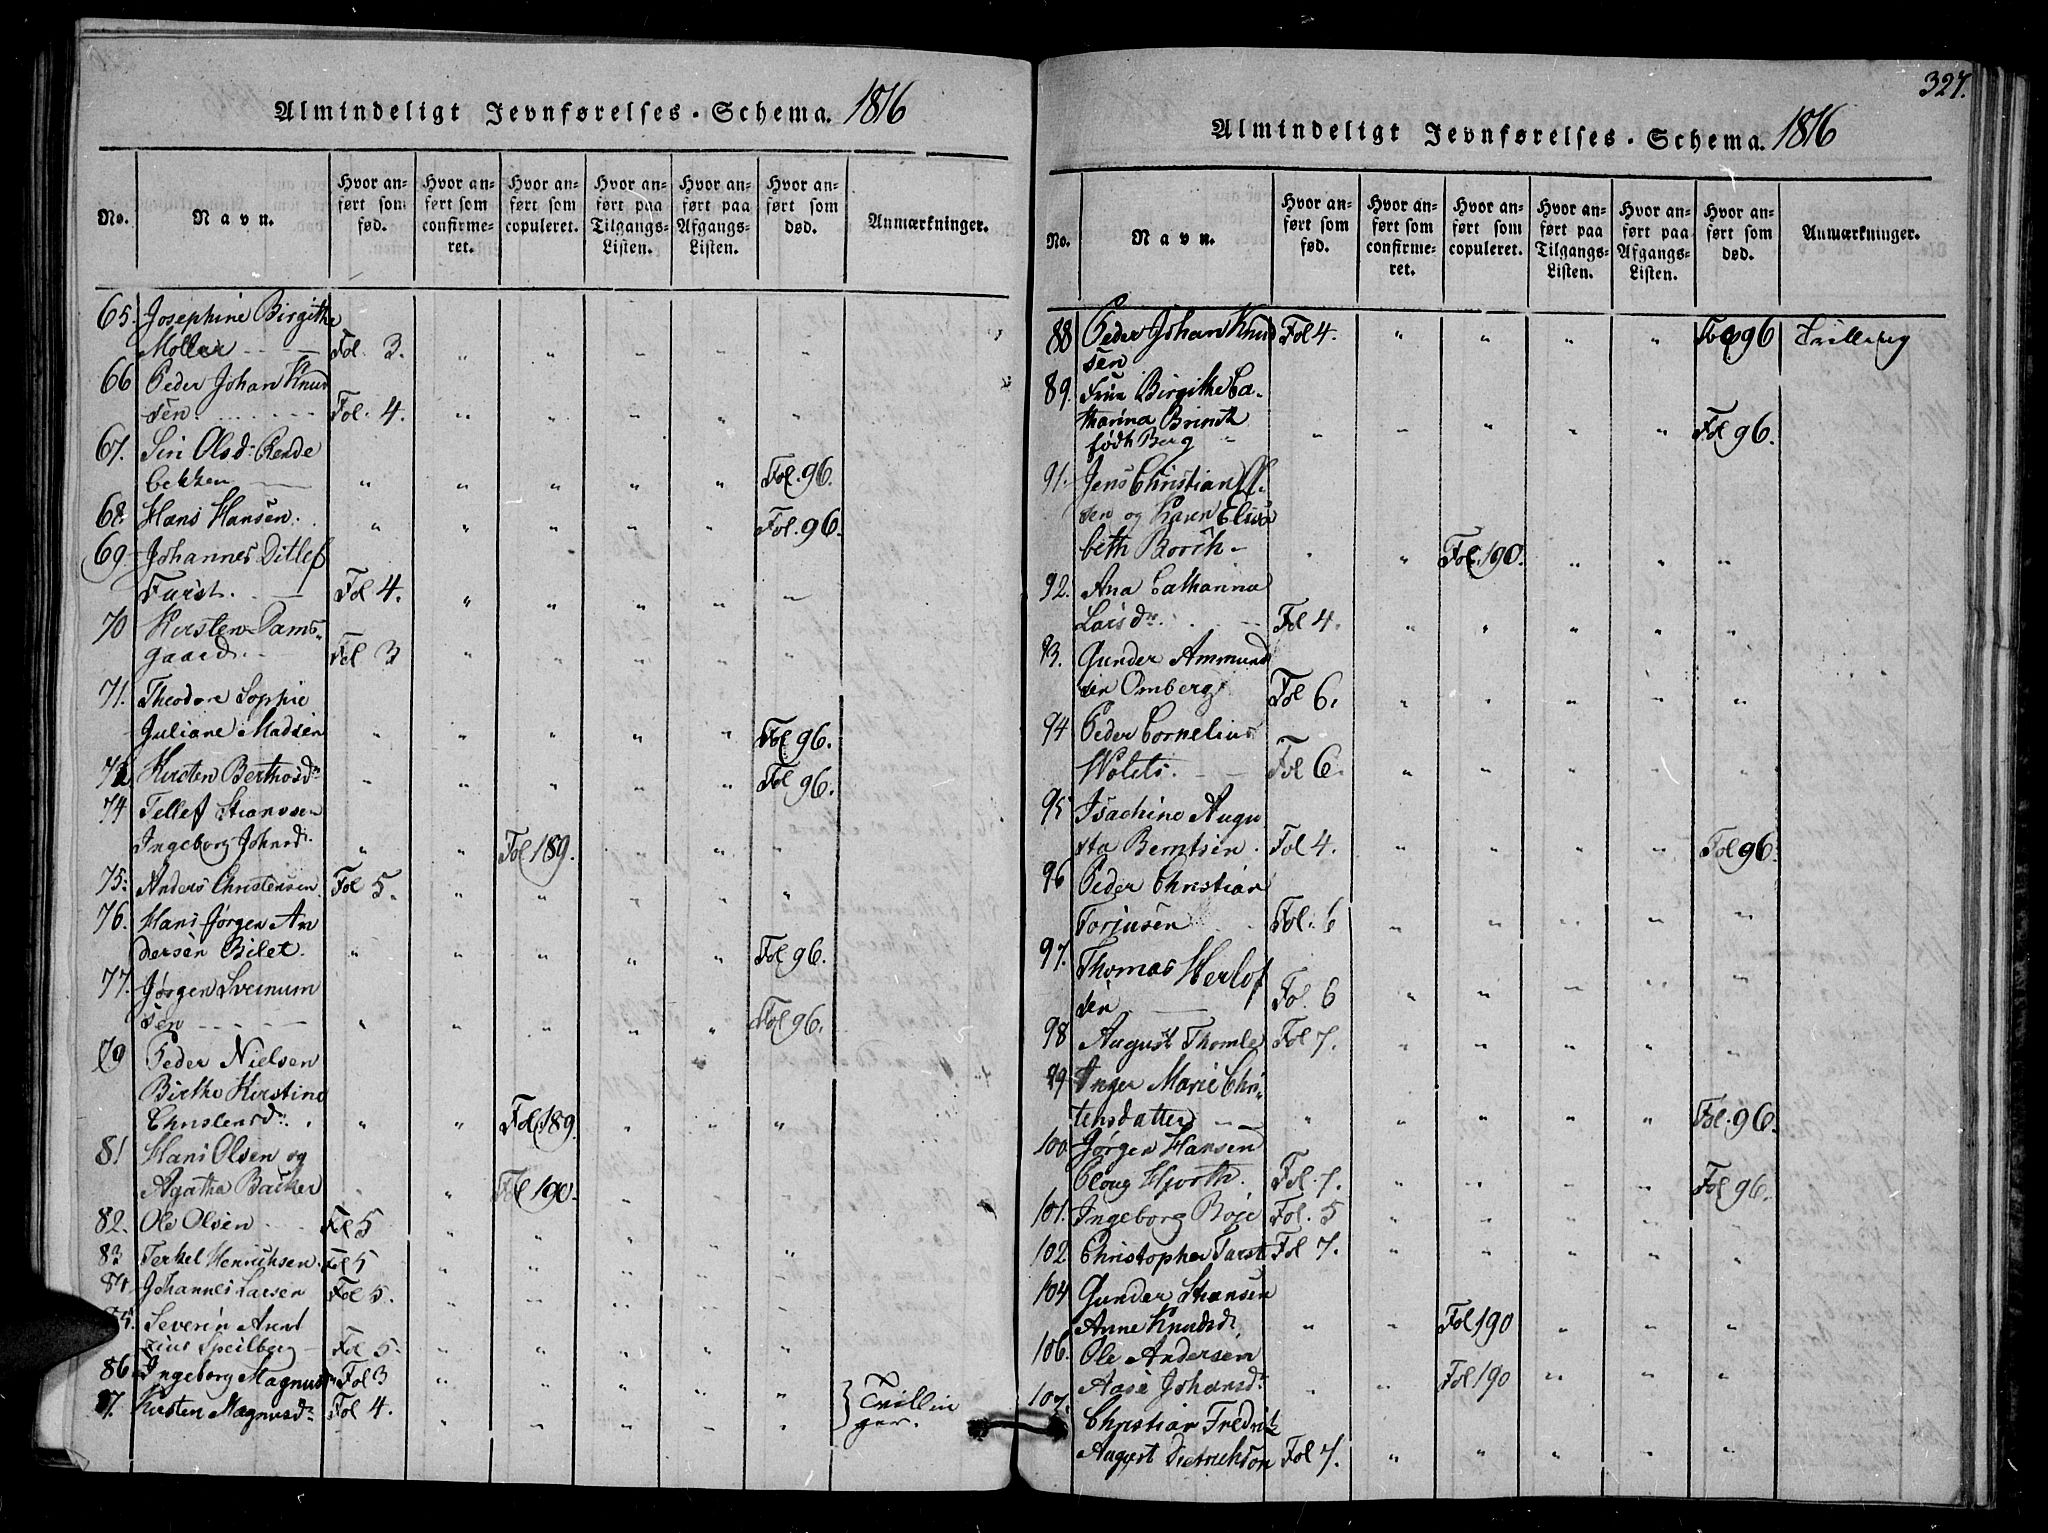 327.
Almindeligt Jevnførelses-Schema. 1816
No. Navn. Hvor anført som fød. Hvor anført som confirmeret. Hvor anført som copuleret. Hvor anført paa Tilgangs-Listen. Hvor anført paa Afgangs-Listen. Hvor anført som død. Anmærkninger.
65. Josephine Birgithe
Møller Fol. 3. " " " " "
66 Peder Johan Knud
sen. Fol. 4. " " " " "
67. Siri Olsd: Rende
bekken " " " " " Fol. 96.
68. Hans Hansen. " " " " " Fol. 96.
69. Johannes Ditlef
Furst. Fol 4. " " " " "
70 Kirsten Dams-
gaard. Fol 3 " " " " "
71. Theodore Sophie
Juliane Madsen " " " " " Fol 96.
72 Kirsten Berthosd: " " " " " Fol 96.
74 Tellef
Ingeborg Johnsd: " " Fol 189. " " "
75. Anders Christensen Fol 5. " " " " "
76. Hans Jørgen An
dersen Bilet. " " " " " Fol 96.
77. Jørgen Sveinum
sen " " " " " Fol 96.
79 Peder Nielsen
Birthe Kirstine
Christensd: " " Fol. 189. " " "
81 Hans Olsen og
Agatha Backer " " Fol 190. " " "
82. Ole Olsen Fol 5 " " " " "
83 Terkel Henrichsen. Fol 5 " " " " "
84. Johannes Larsen Fol 5. " " " " "
85. Severin Arent
zius Speilberg Fol 5. " " " " "
86 Ingeborg Magnusd: Fol 3 " " " " "
87. Kirsten Magnusd: Fol 4. " " " " " } Tvillin
ger.
Almindeligt Jevnførelses-Schema. 1816
No. Navn. Hvor anført som fød. Hvor anført som confirmeret. Hvor anført som copuleret. Hvor anført paa Tilgangs-Listen. Hvor anført paa Afgangs-Listen. Hvor anført som død. Anmærkninger.
88 Peder Johan Knud Fol 4. " " " " Fol 96 Tvilling
sen
89. Frue Birgithe Ca-
tharina
født Berg " " " " " Fol 96.
91. Jens Christian
sen og Karen Elisa
beth Borch " " Fol. 190. " " "
92. Ana Catharina
Larsd: Fol 4. " " " " "
93. Gunder Ammund
sen Omberg Fol 6. " " " " "
94 Peder Cornelius
Fol 6. " " " " "
95 Isachine Augu
sta Berntsen. Fol 4. " " " " Fol 96.
96 Peder Christian
Torjusen Fol. 6 " " " " "
97. Thomas Herlof
sen Fol. 6 " " " " "
98 August Thomle Fol 7. " " " " "
99 Inger Marie Chri-
stensdatter " " " " " Fol. 96.
100 Jørgen Hansen
Ploug Hjorth. Fol. 7. " " " " Fol 96.
101. Ingeborg Boje Fol. 5 " " " " "
102 Christopher Furst Fol 7. " " " " "
104 Gunder
Anne Knudsd: " " Fol 190 " " "
106. Ole Andersen
Aase Johansd: " " Fol 190 " " "
107. Christian Fredrik
August Dietrichson Fol 7. " " " " "